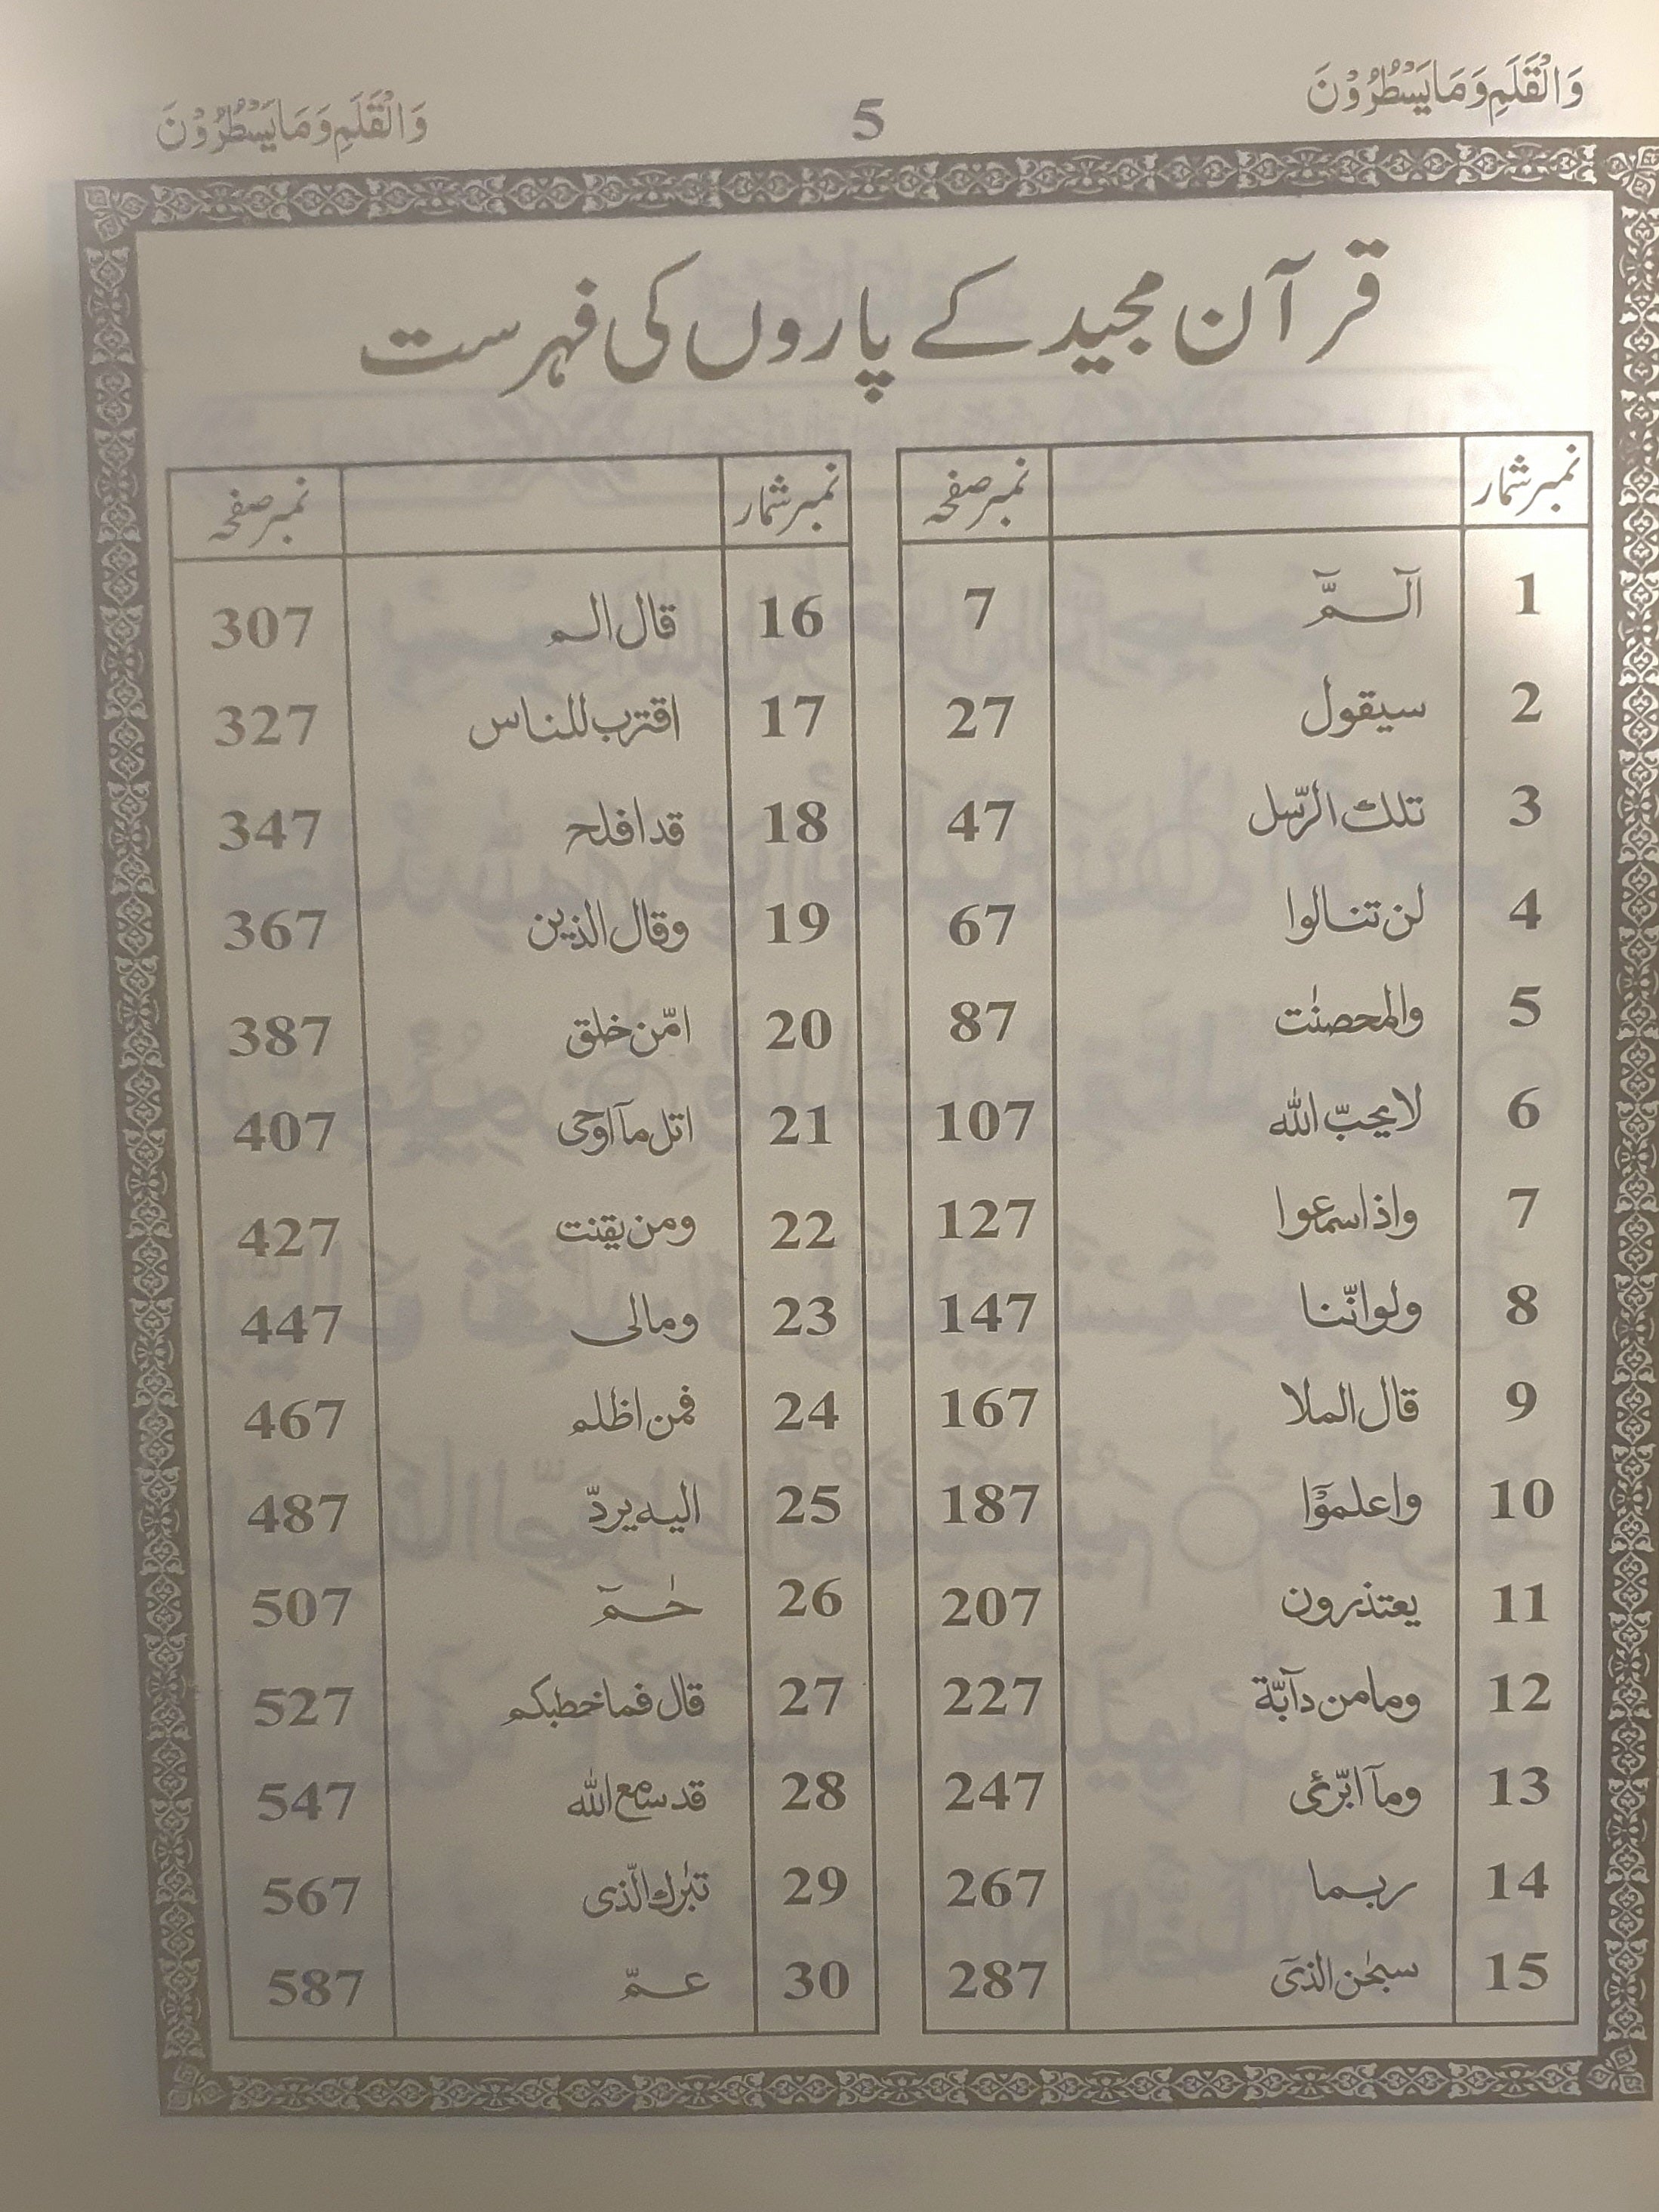 وَالْقَلَمِ وَمَا يَسْطُرُوْنَ 5 وَالْقَلَمِ وَمَا يَسْطُرُوْنَ
قرآن مجید کے پاروں کی فہرست
نمبر شمار نمبر صفحہ
1 آلـمّٓ 7
2 سیقول 27
3 تلك الرّسل 47
4 لن تنالوا 67
5 والمحصنٰت 87
6 لا یحبّ اللہ 107
7 واذا سمعوا 127
8 ولو انّنا 147
9 قال الملا 167
10 واعلموْٓا 187
11 یعتذرون 207
12 وما من دآبّة 227
13 ومآ ابرّئ 247
14 ربما 267
15 سبحٰن الذیٓ 287
نمبر شمار نمبر صفحہ
16 قال الم 307
17 اقترب للناس 327
18 قد افلح 347
19 وقال الذین 367
20 امّن خلق 387
21 اتل مآ اوحی 407
22 ومن یقنت 427
23 ومالی 447
24 فمن اظلم 467
25 الیہ یردّ 487
26 حٰمٓ 507
27 قال فما خطبکم 527
28 قد سمع اللہ 547
29 تبٰرك الّذی 567
30 عمّ 587